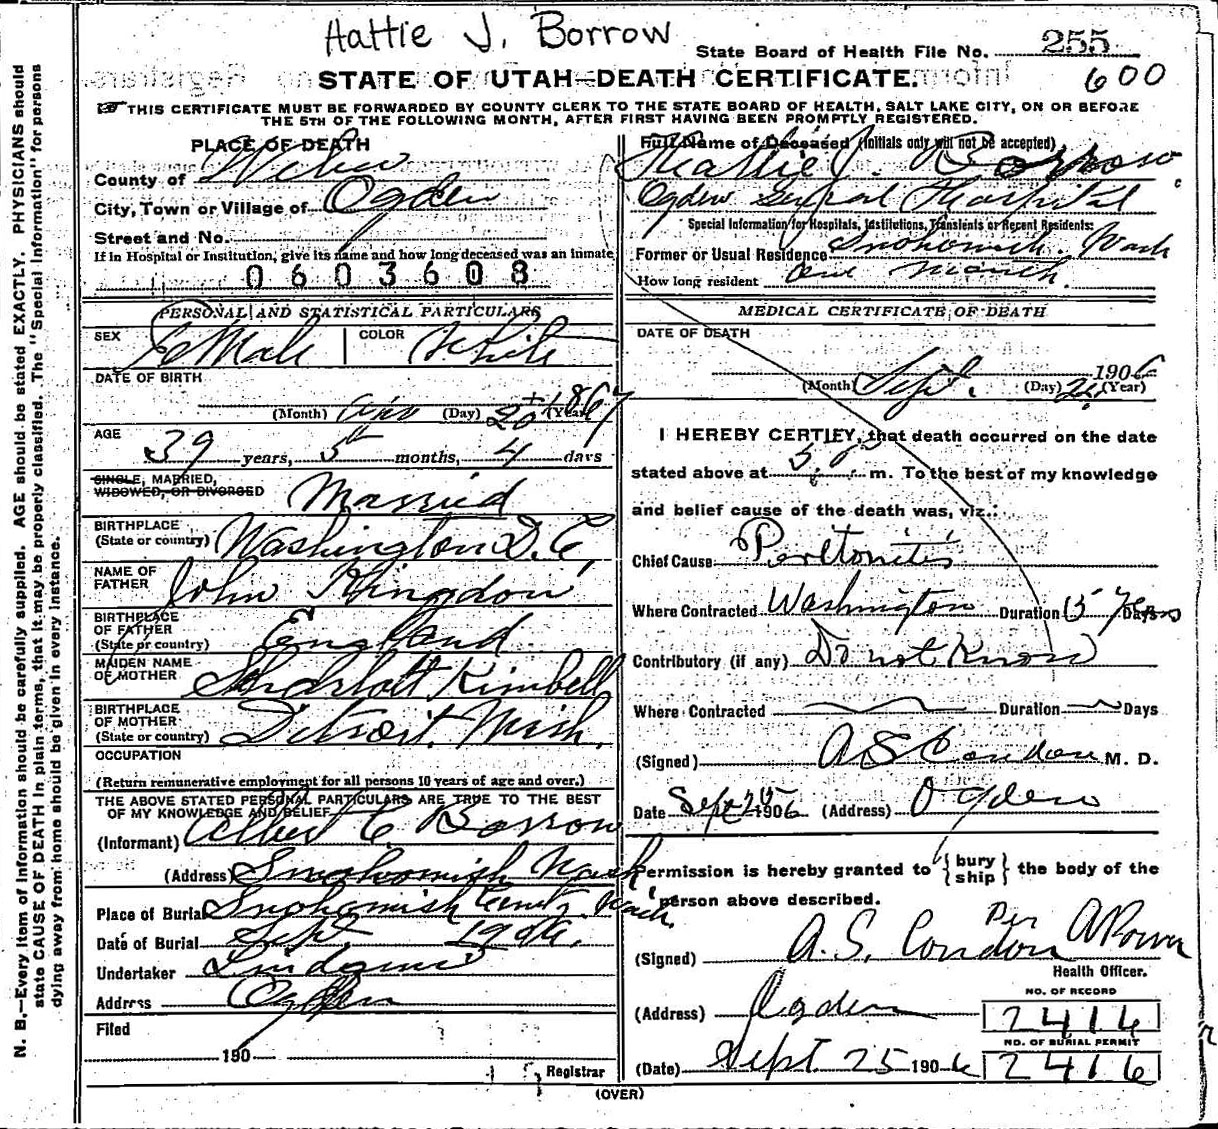 Hattie J. Borrow
State Board of Health File No. 255
STATE OF UTAH—DEATH CERTIFICATE. 600
THIS CERTIFICATE MUST BE FORWARDED BY COUNTY CLERK TO THE STATE BOARD OF HEALTH, SALT LAKE CITY, ON OR BEFORE
THE 5TH OF THE FOLLOWING MONTH, AFTER FIRST HAVING BEEN PROMPTLY REGISTERED.
PLACE OF DEATH
County of Weber
City, Town or Village of Ogden
Street and No.
If in Hospital or Insitution, give its name and how long deceased was an inmate
0603608
PERSONAL AND STATISTICAL PARTICULARS
SEX Female COLOR White
DATE OF BIRTH
(Month) Apr (Day) 20 (Year) 1867
AGE
39 years, 5 months, 4 days
SINGLE, MARRIED,
WIDOWED, OR DIVORCED Married
BIRTHPLACE
(State or country) Washington D.C.
NAME OF
FATHER John Kingdon
BIRTHPLACE
OF FATHER
(State or country) England
MAIDEN NAME
OF MOTHER Sharlott Kimbell
BIRTHPLACE
OF MOTHER
(State or country) Detroit Mich.
OCCUPATION
(Return remunerative employment for all persons 10 years of age and over.)
THE ABOVE STATED PERSONAL PARTICULARS ARE TRUE TO THE BEST
OF MY KNOWLEDGE AND BELIEF
(Informant) Albert C. Borrow
(Address) Snohomish Wash
Place of Burial Snohomish Cemty. Wash.
Date of Burial Sept 1906.
Undertaker
Address Ogden
Filed
190
Registrar
Full Name of Deceased (Initials only will not be accepted)
Hattie J. Borrow
Ogden General Hospital
Special Information for Hospitals, Institutions, Transients or Recent Residents:
Former or Usual Residence Snohomish. Wash
How long resident one month.
MEDICAL CERTIFICATE OF DEATH
DATE OF DEATH
1906
(Month) Sept. (Day) 24 (Year)
I HEREBY CERTIFY, that death occurred on the date
stated above at 5 m. To the best of my knowledge
and belief cause of the death was, viz.:
Chief Cause Peritonitis
Where Contracted Washington Duration 15 Years Days
Contributory (if any) Do not Know
Where Contracted Duration Days
(Signed) A S Condon M. D.
Date Sept 25 1906 (Address) Ogden
Permission is hereby granted to {bury
ship} the body of the
person above described.
(Signed) A. S. Condon Per A Power
Health Officer.
(Address) Ogden
NO. OF RECORD
2416
NO. OF BURIAL PERMIT
(Date) Sept. 25 1906 2416
(OVER)
N. B.—Every item of information should be carefully supplied. AGE should be stated EXACTLY. PHYSICIANS should
state CAUSE OF DEATH in plain terms, that it may be properly classified. The "Special Information" for persons
dying away from home should be given in every instance.